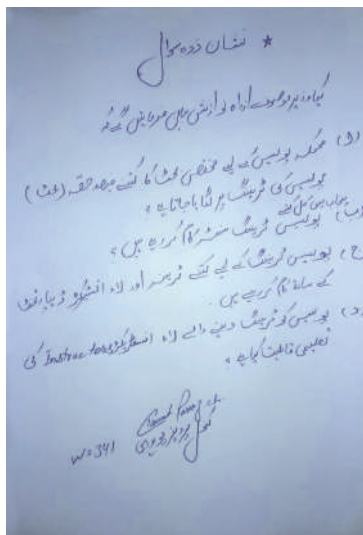 ★ نشان زدہ سوال
کیا وزیر موصوف ازراہ نوازش بیان فرمائیں گے کہ
(ا) محکمہ پولیس کے لیے مختص بجٹ کا کتنے فیصد حصہ (بجٹ)
پولیس کی ٹریننگ پر لگایا جاتا ہے؟
(ب) پولیس ٹریننگ سنٹر کام کر رہے ہیں؟
(ج) پولیس ٹریننگ کے لیے کتنے ٹرینر اور لاء انسٹرکٹر ڈیپارٹمنٹ
کے ساتھ کام کر رہے ہیں۔
(د) پولیس کو ٹریننگ دینے والے لاء انسٹرکٹر Instructors کی
تعلیمی قابلیت کیا ہے؟
کنول پرویز چوہدری
W-341